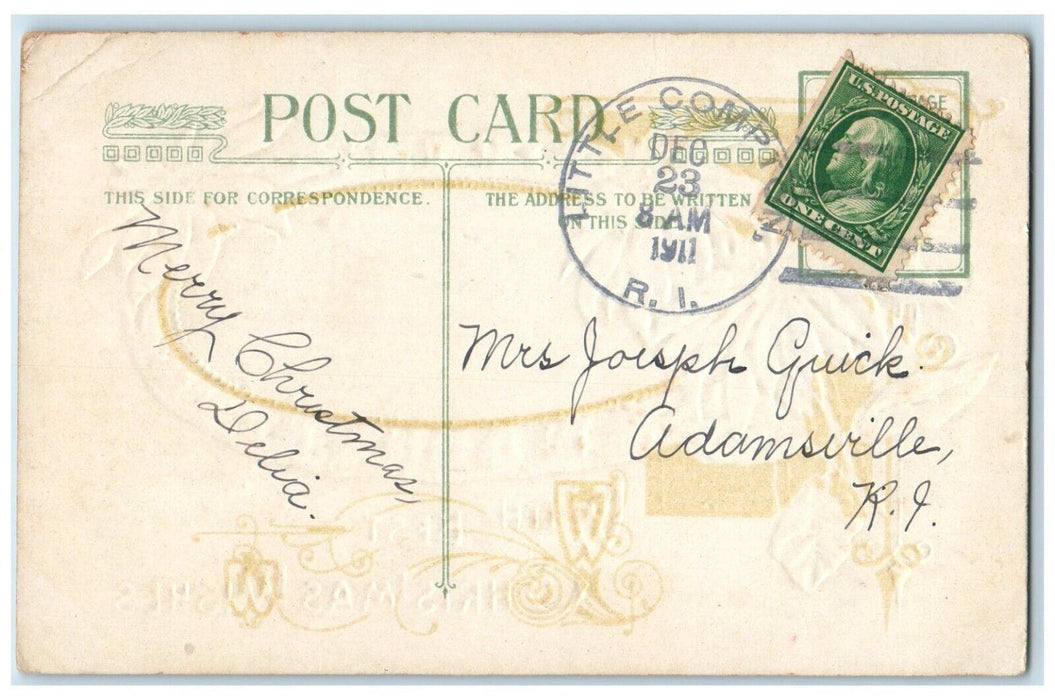 POST CARD
THIS SIDE FOR CORRESPONDENCE.
THE ADDRESS TO BE WRITTEN
ON THIS SIDE
LITTLE COMPTON
DEC
23
8 AM
1911
R. I.
U.S. POSTAGE
ONE CENT
Merry Christmas,
Delia.
Mrs Joesph Quick.
Adamsville,
R.I.
WITH
BEST
CHRISTMAS WISHES